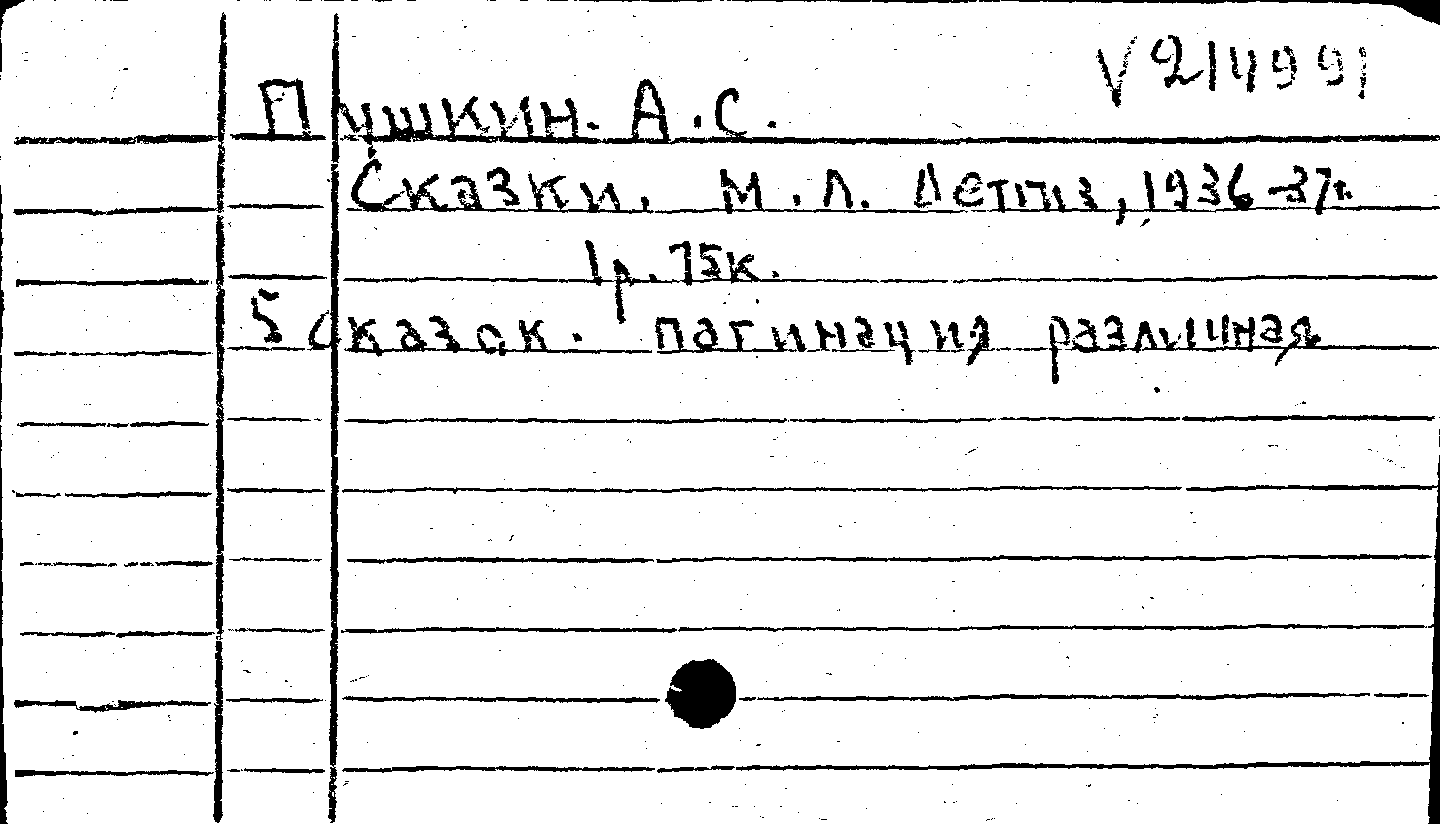 V 214991
Пушкин. А.С.
Сказки. М.Л. Детгиз, 1936-37г.
1р. 75к.
5 сказок. пагинация различная